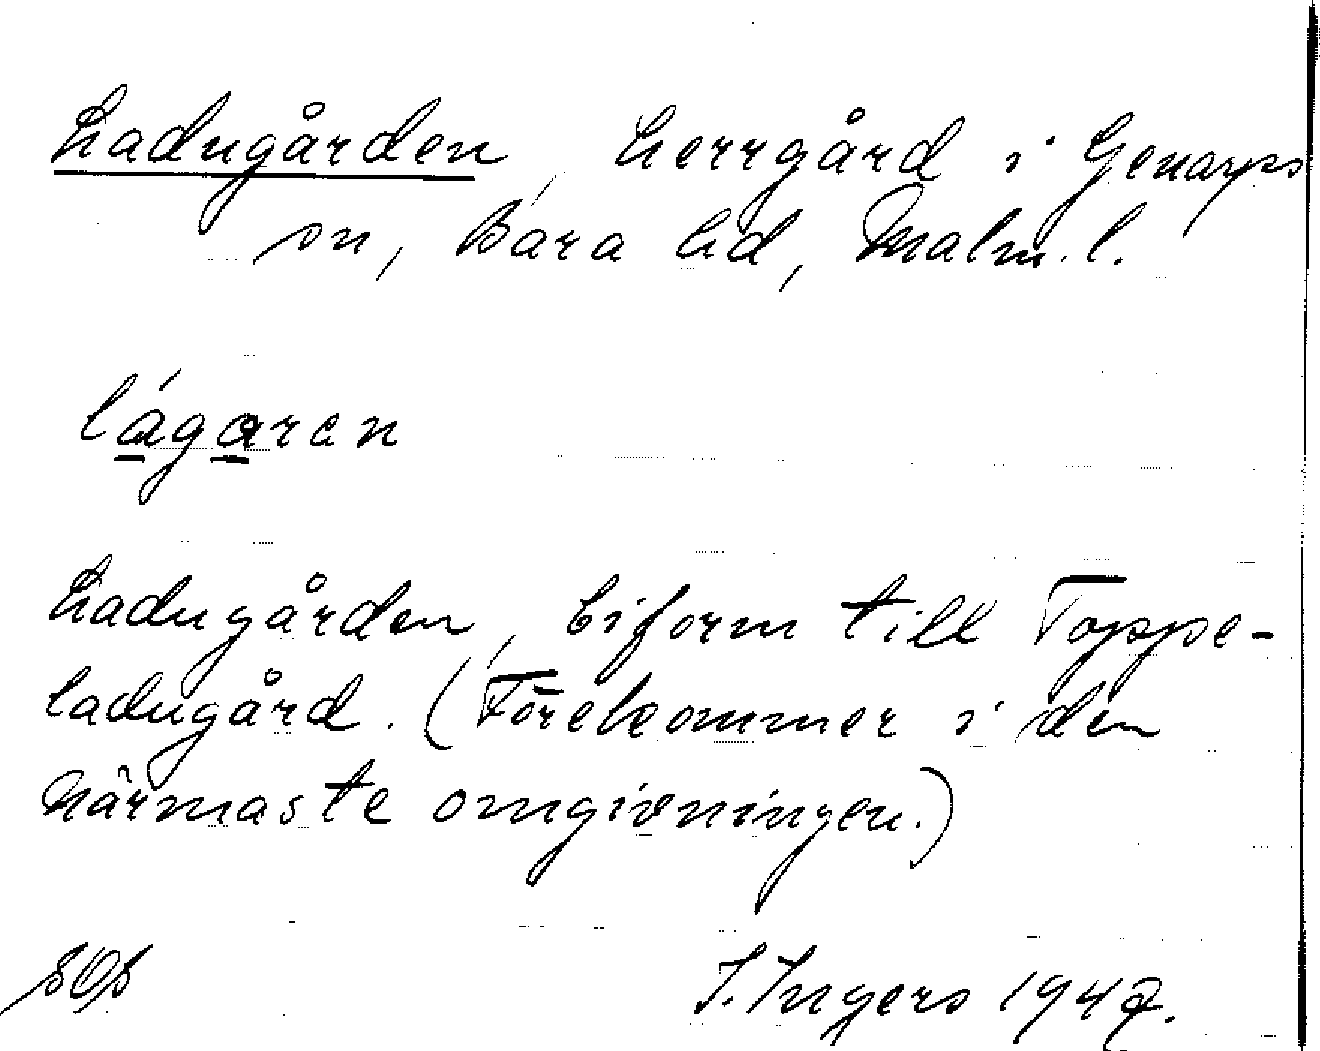 Ladugården, herrgård i Genarps
sn, Bara hd, Malm. l.
lágaren
Ladugården, biform till Toppe-
ladugård. (Förekommer i den
närmaste omgivningen.)
I. Ingers 1942.